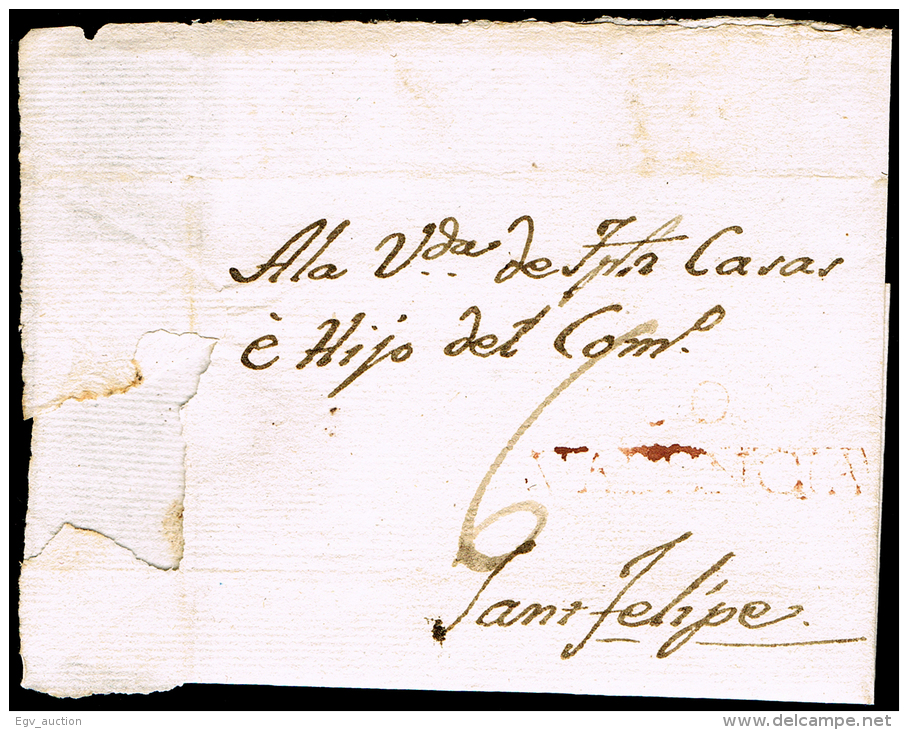 A la V.da de Jph Casas
è Hijo del Com.o
6
Sant Felipe.
Egv_auction
delcampe.net